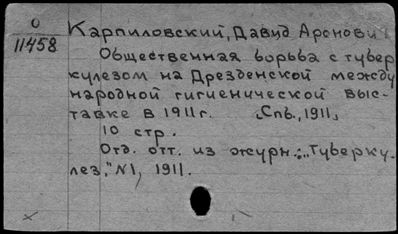 О
11458
Карпиловский, Давид Аронович
Общественная борьба с тубер
кулезом на Дрезденской между
народной гигиенической выс-
тавке в 1911 г. Спб., 1911,
10 стр.
Отд. отт. из журн.: "Туберку-
лез," N1, 1911.